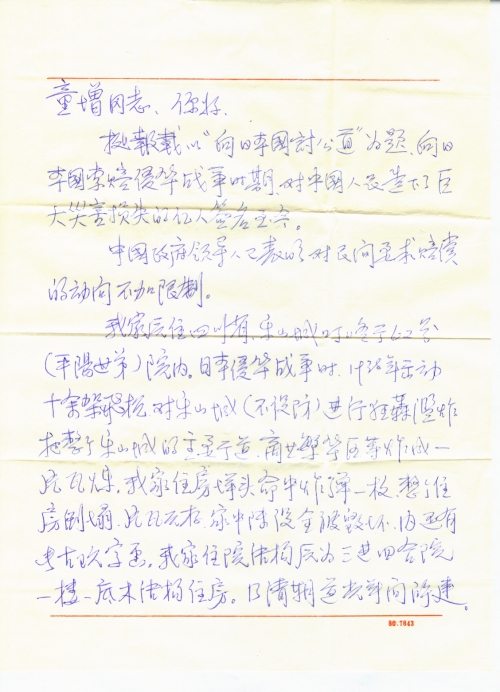 童增同志、你好.
据報載以"向日本國討公道"为题.向日
本國索赔侵华战事时期.对中国人民造下了巨
大災害损失的亿人签名
中国政府领导人已表明对民间要求赔赏
的动向不加限制。
我家原住四川省.乐山城叮咚子62号
(平陽世第)院内。日本侵华战事时.1938年出动
十余架飛机.对乐山城(不设防)进行狂轟濫炸
把整个乐山城的主要干道.商业繁华区等炸成一
片瓦烁,我家住房埲头命中炸弹一枚.整个住
房倒塌.片瓦无存.家中陈设全被毁坏.内还有
古玩字画,我家住院结构原为三进四合院
一楼一底木结构住房。乃清朝道光年间降建。
BD.7843